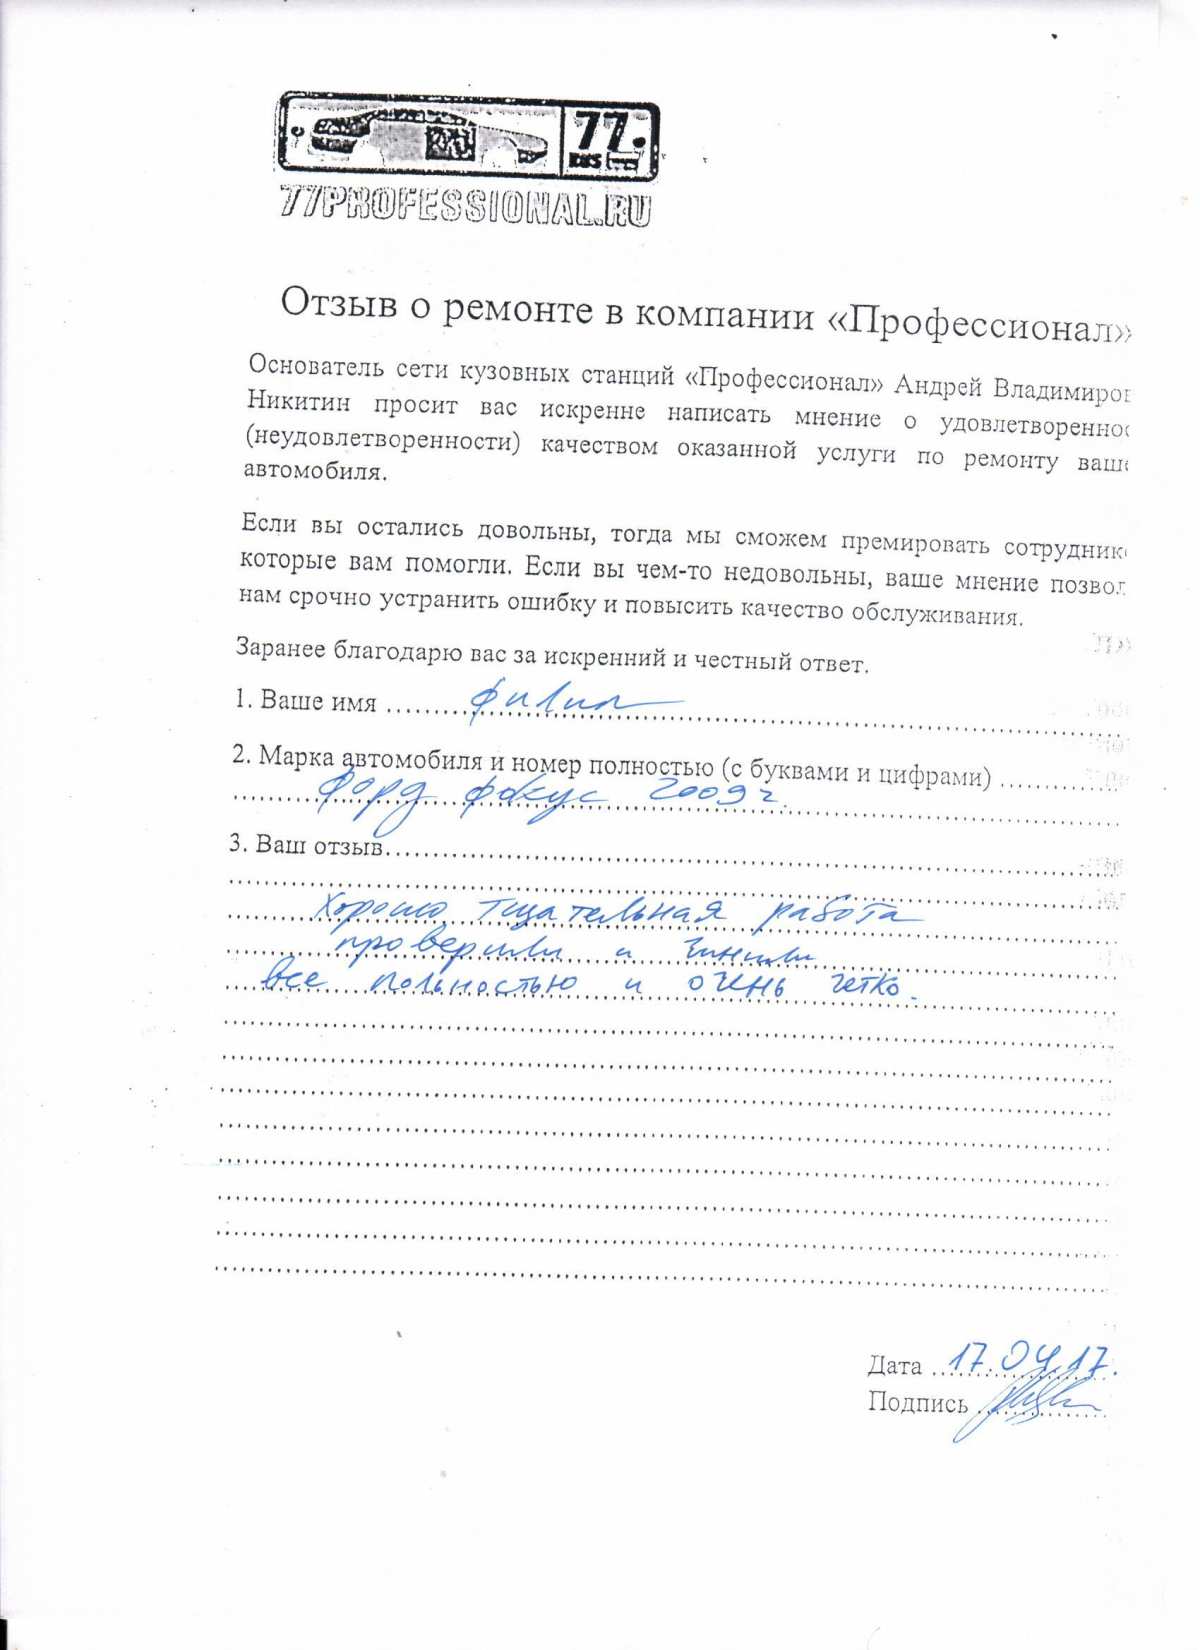 77.
RUS
77PROFESSIONAL.RU
Отзыв о ремонте в компании «Профессионал»
Основатель сети кузовных станций «Профессионал» Андрей Владимиров
Никитин просит вас искренне написать мнение о удовлетворенно
(неудовлетворенности) качеством оказанной услуги по ремонту ваше
автомобиля.
Если вы остались довольны, тогда мы сможем премировать сотрудник
которые вам помогли. Если вы чем-то недовольны, ваше мнение позвол
нам срочно устранить ошибку и повысить качество обслуживания.
Заранее благодарю вас за искренний и честный ответ.
1. Ваше имя Филип
2. Марка автомобиля и номер полностью (с буквами и цифрами)
Форд фокус 2009 г.
3. Ваш отзыв
Хорошо тщательная работа
проверили и чинили
все польностью и очень четко.
Дата 17.04.17.
Подпись